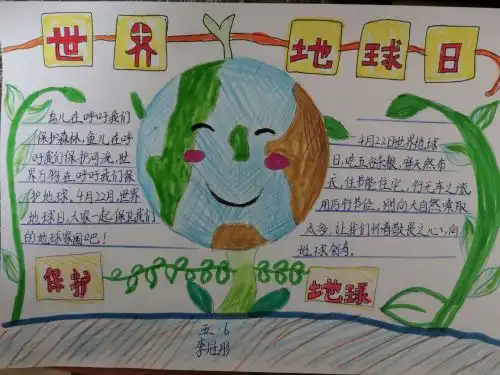 世界地球日
鸟儿在呼吁我们
保护森林,鱼儿在呼
吁我们保护河流,世
界万物在呼吁我们保
护地球。4月22日,世界
地球日,大家一起,保卫我们
的地球家园吧!
4月22日世界地球
日,吃五谷杂粮,穿天然布
衣,住节能住宅,行无车之旅,
用厉行节俭,别向大自然索取
太多,让我们怀着敬畏之心,向
地球领寿。
保护
地球
五.6
李冠彤